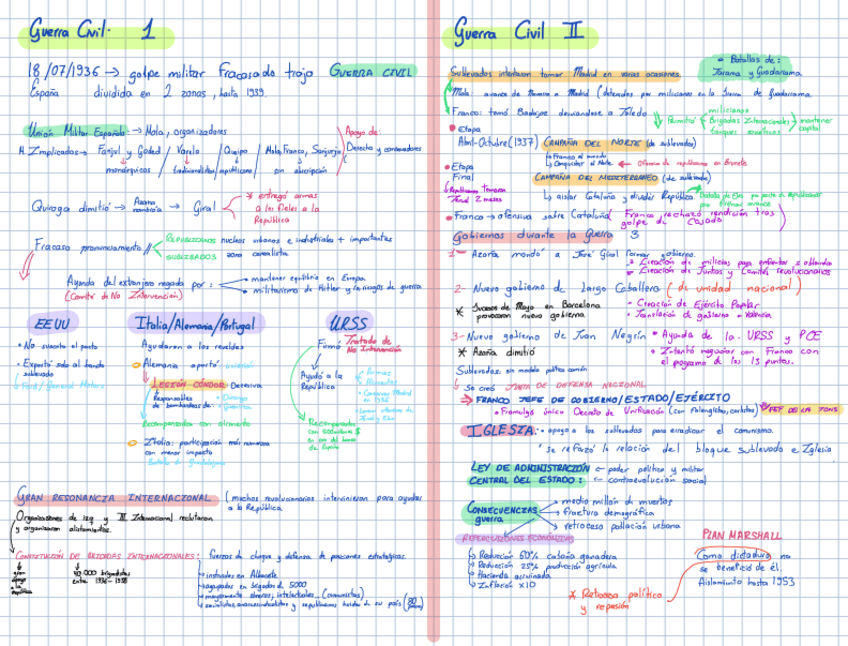 Guerra Civil 1
18/07/1936 → golpe militar Fracasado trajo GUERRA CIVIL
España dividida en 2 zonas, hasta 1939.
Unión Militar Española → Mola, organizadores
M. Implicados → Fanjul y Goded / Varela / Queipo / Mola, Franco, Sanjurjo
monárquicos / tradicionalistas / republicano / sin adscripción
Apoyo de:
Derecha y conservadores
Quiroga dimitió → Azaña → Giral
* entregó armas
a los fieles a la
República
Fracaso pronunciamiento //
REPUBLICANOS nucleos urbanos e industriales + importantes
SUBLEVADOS zona cerealista
Ayuda del extranjero negada por:
(Comité de No Intervención)
mantener equilibrio en Europa
militarismo de Hitler y los riesgos de guerra
EEUU
• No suscrito al pacto
• Exportó solo al bando
sublevado
Ford / General Motors
Italia/Alemania/Portugal
Ayudaron a los rebeldes
Alemania aportó
LEGIÓN CÓNDOR
Responsables
de bombardeos de:
• Durango
• Guernica
Recompensados con alimento
Italia: participación más numerosa
con menor impacto
Batalla de Guadalajara
URSS
Firmó Tratado de
No Intervención
Ayudó a la
República
• Armas
• Alimentos
Recompensados
con 500 millones $
en oro del banco
de España
GRAN RESONANCIA INTERNACIONAL (muchos revolucionarios intervinieron para ayudar
a la República.
Organizaciones de izq y III Internacional reclutaron
y organizaron alistamientos.
CONSTITUCIÓN DE BRIGADAS INTERNACIONALES: fuerzas de choque y defensa de posiciones estratégicas.
brigadistas
entre 1936-1938
instruidos en Albacete
agrupados en brigadas d 5000
mayormente obreros, intelectuales, (comunistas)
socialistas, anarcosindicalistas y republicanos huidos de su país
Guerra Civil II
Sublevados intentaron tomar Madrid en varias ocasiones
• Batallas de:
Jarama y Guadarrama.
Mola: avance de Navarra a Madrid (detenidos por milicianos en la Sierra de Guadarrama.
Franco: tomó Badajoz desviandose a Toledo
Permitió
milicianos
Brigadas Internacionales
tanques soviéticos
mantener
capital
• Etapa
Abril-Octubre (1937) CAMPAÑA DEL NORTE (de sublevados)
Conquistar el Norte ← Ofensiva de republicanos en Brunete
• Etapa
Final CAMPAÑA DEL MEDITERRANEO (de sublevados)
Republicanos tomaron
Teruel 2 meses
aislar Cataluña y dividir República
• Franco → ofensiva sobre Cataluña
Franco rechazó rendición tras
golpe de Casado
Gobiernos durante la Guerra 3
1- Azaña mandó a José Giral formar gobierno.
Creación de milicias para enfrentar a sublevados
Creación de Juntas y Comités revolucionarios
2- Nuevo gobierno de Largo Caballero (de unidad nacional)
* Sucesos de Mayo en Barcelona
provocaron nuevo gobierno.
• Creación de Ejército Popular
• Translación de gobierno → Valencia.
3- Nuevo gobierno de Juan Negrín
* Azaña dimitió
• Ayuda de la URSS y PCE
• Intentó negociar con Franco con
el programa de los 13 puntos.
Sublevados: sin modelo político común
↓ Se creó JUNTA DE DEFENSA NACIONAL
→ FRANCO JEFE DE GOBIERNO/ESTADO/EJÉRCITO
• Promulga único Decreto de Unificación (con Falangistas, carlistas) FET DE LA JONS
IGLESIA: • apoyo a los sublevados para erradicar el comunismo.
• se reforzó la relación del bloque sublevado e Iglesia
LEY DE ADMINISTRACIÓN
CENTRAL DEL ESTADO:
← poder político y militar
← contrarevolución social
CONSECUENCIAS
guerra
medio millón de muertos
fractura demográfica
retroceso población urbana
REPERCUSIONES ECONÓMICAS
Reducción 50% cabaña ganadera
Reducción 25% producción agrícola
Hacienda arruinada
Inflación x10
* Retroceso político
y represión
PLAN MARSHALL
Como dictadura no
se benefició de él.
Aislamiento hasta 1953